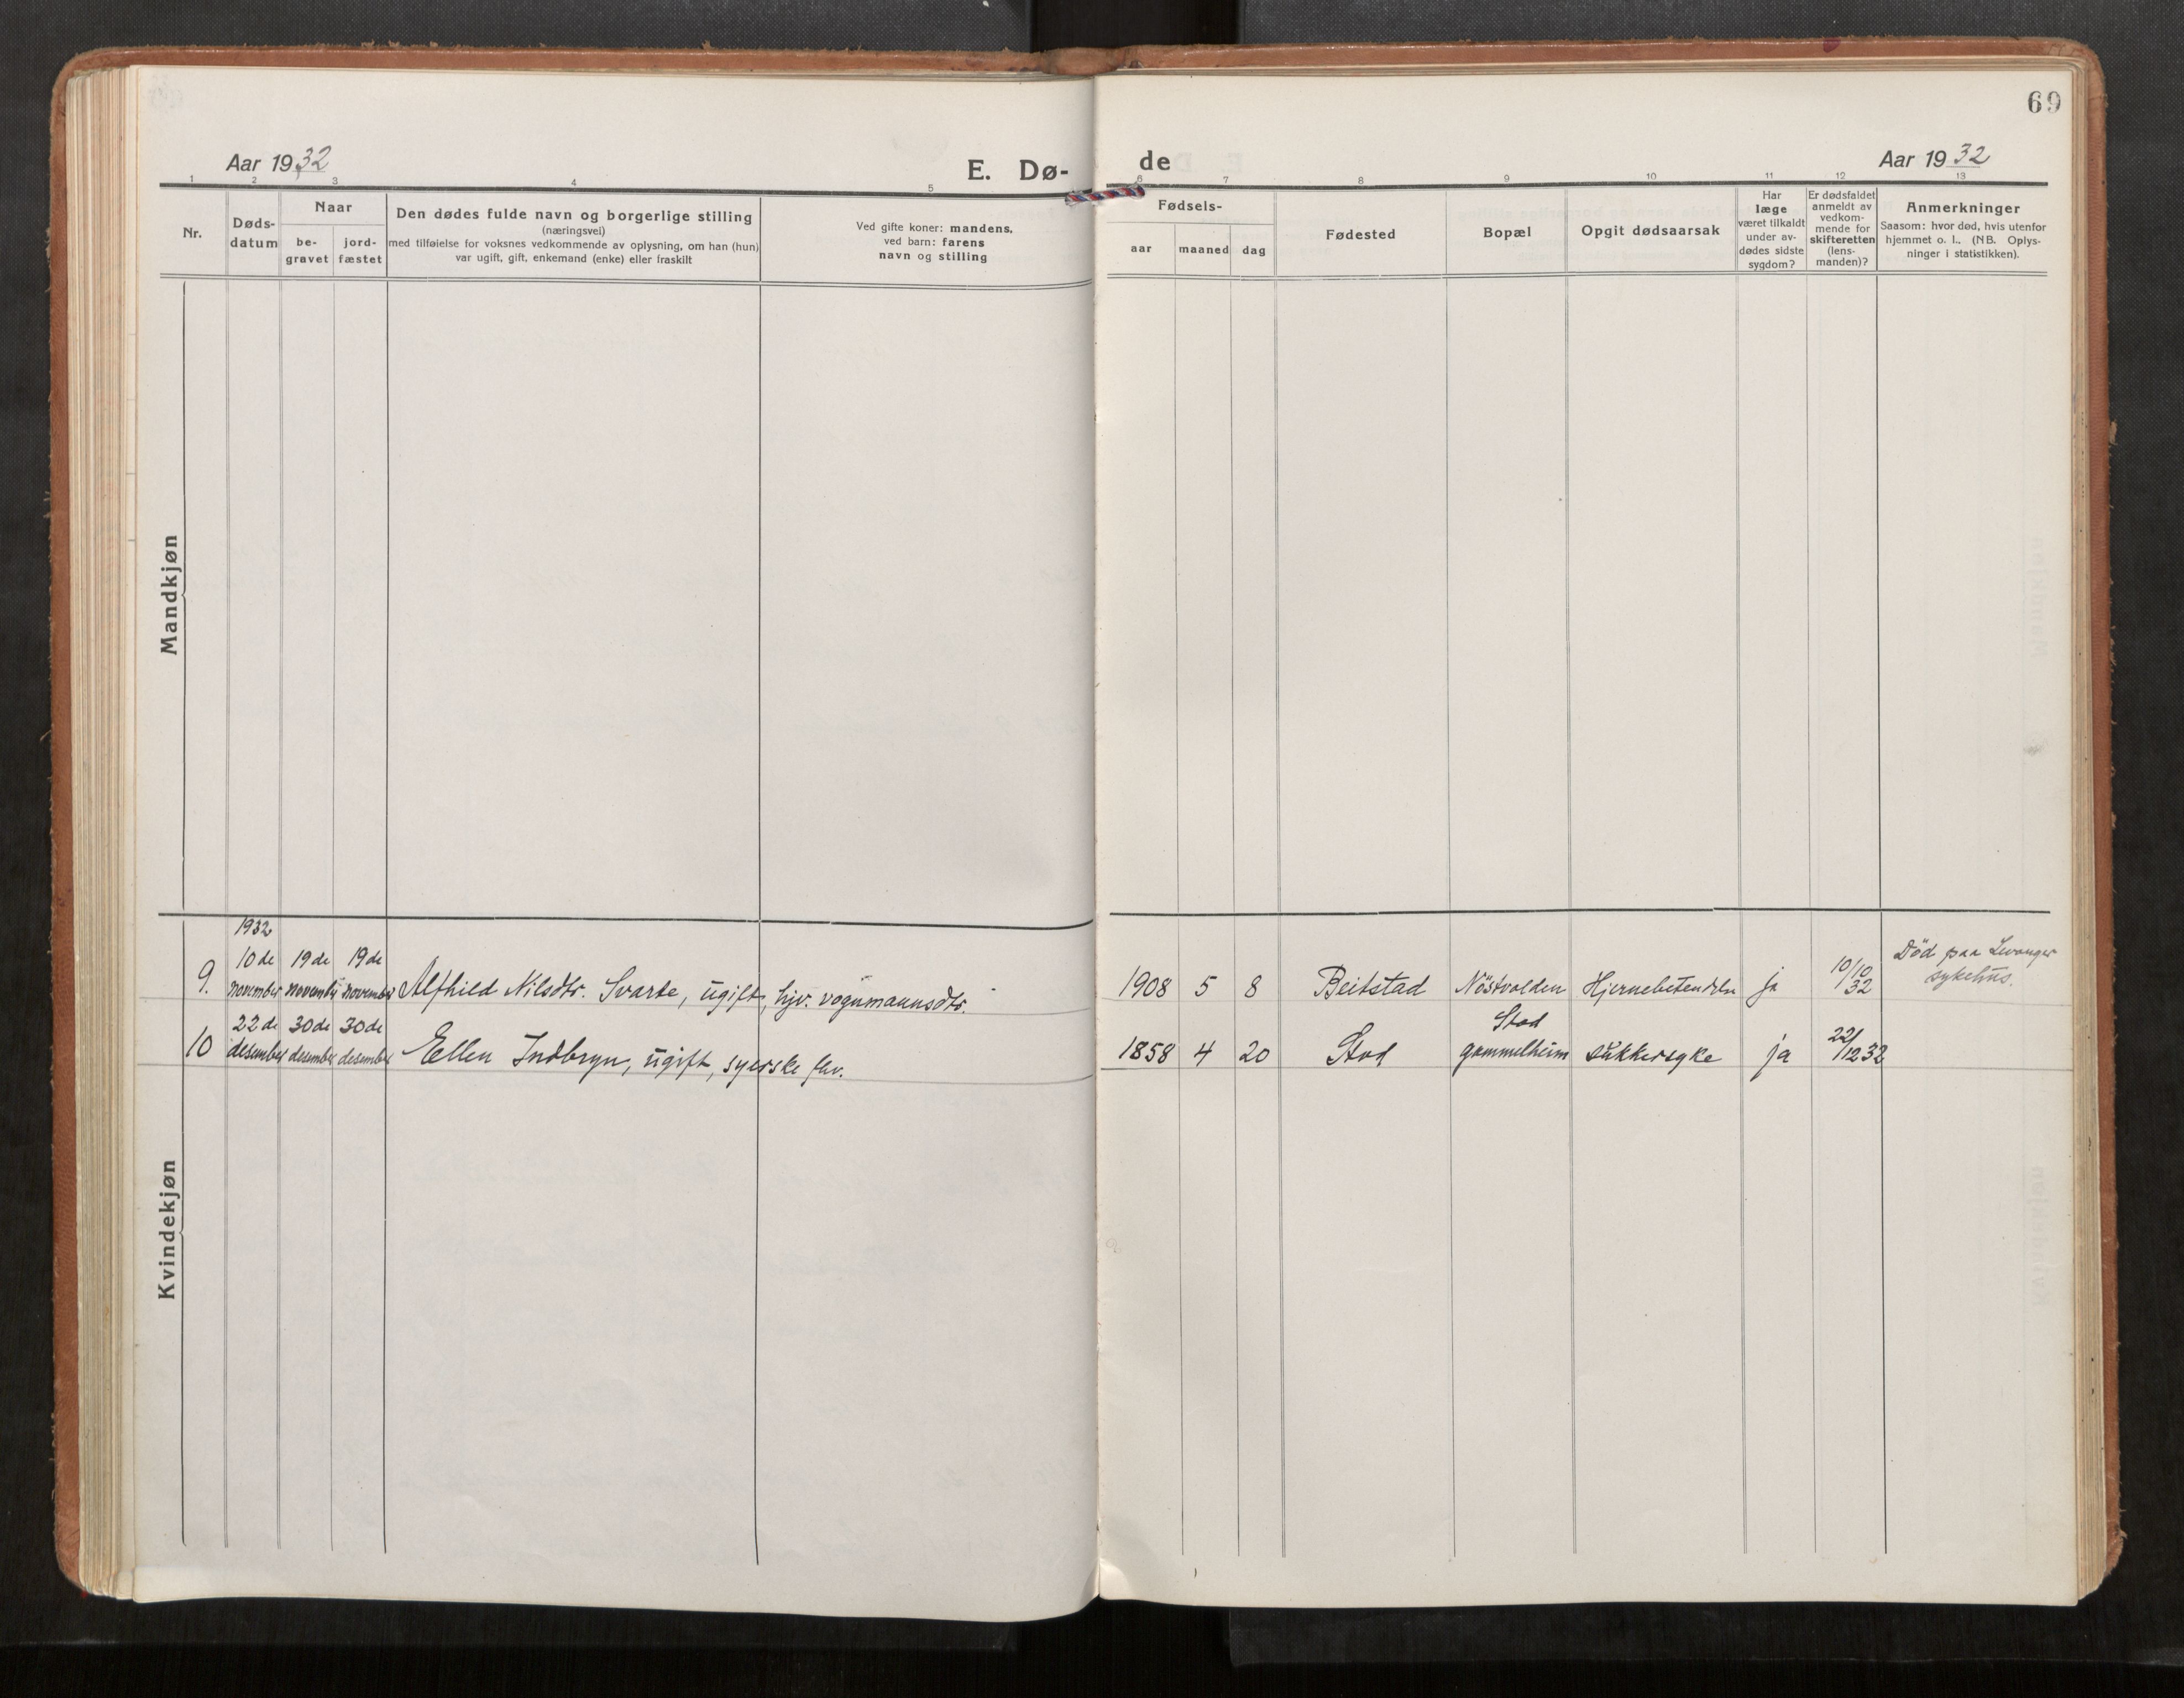 69
Aar 1932
E. Dø-
de
Aar 1932
1 2 3 4 5 6 7 8 9 10 11 12 13
Nr.
Døds-
datum
Naar
be-
gravet
jord-
fæstet
Den dødes fulde navn og borgerlige stilling
(næringsvei)
med tilføielse for voksnes vedkommende av oplysning, om han (hun)
var ugift, gift, enkemand (enke) eller fraskilt
Ved gifte koner: mandens,
ved barn: farens
navn og stilling
Fødsels-
aar maaned dag
Fødested
Bopæl
Opgit dødsaarsak
Har
læge
været tilkaldt
under av-
dødes sidste
sygdom?
Er dødsfaldet
anmeldt av
vedkom-
mende for
skifteretten
(lens-
manden)?
Anmerkninger
Saasom: hvor død, hvis utenfor
hjemmet o. l.. (NB. Oplys-
ninger i statistikken).
Mandkjøn
Kvindekjøn
1932
10de 19de 19de
9. november november november Alfhild Nilsdtr. Svarte, ugift, hjv. vognmannsdtr. 1908 5 8 Beitstad Nöstvolden Hjernebetendelse ja 10/10 32 Död paa Levanger
sykehus.
22de 30de 30de Stod
10 desember desember desember Ellen Indbryn, ugift, syerske fhv. 1858 4 20 Stod gammelheim sukkersyke ja 22/12 32